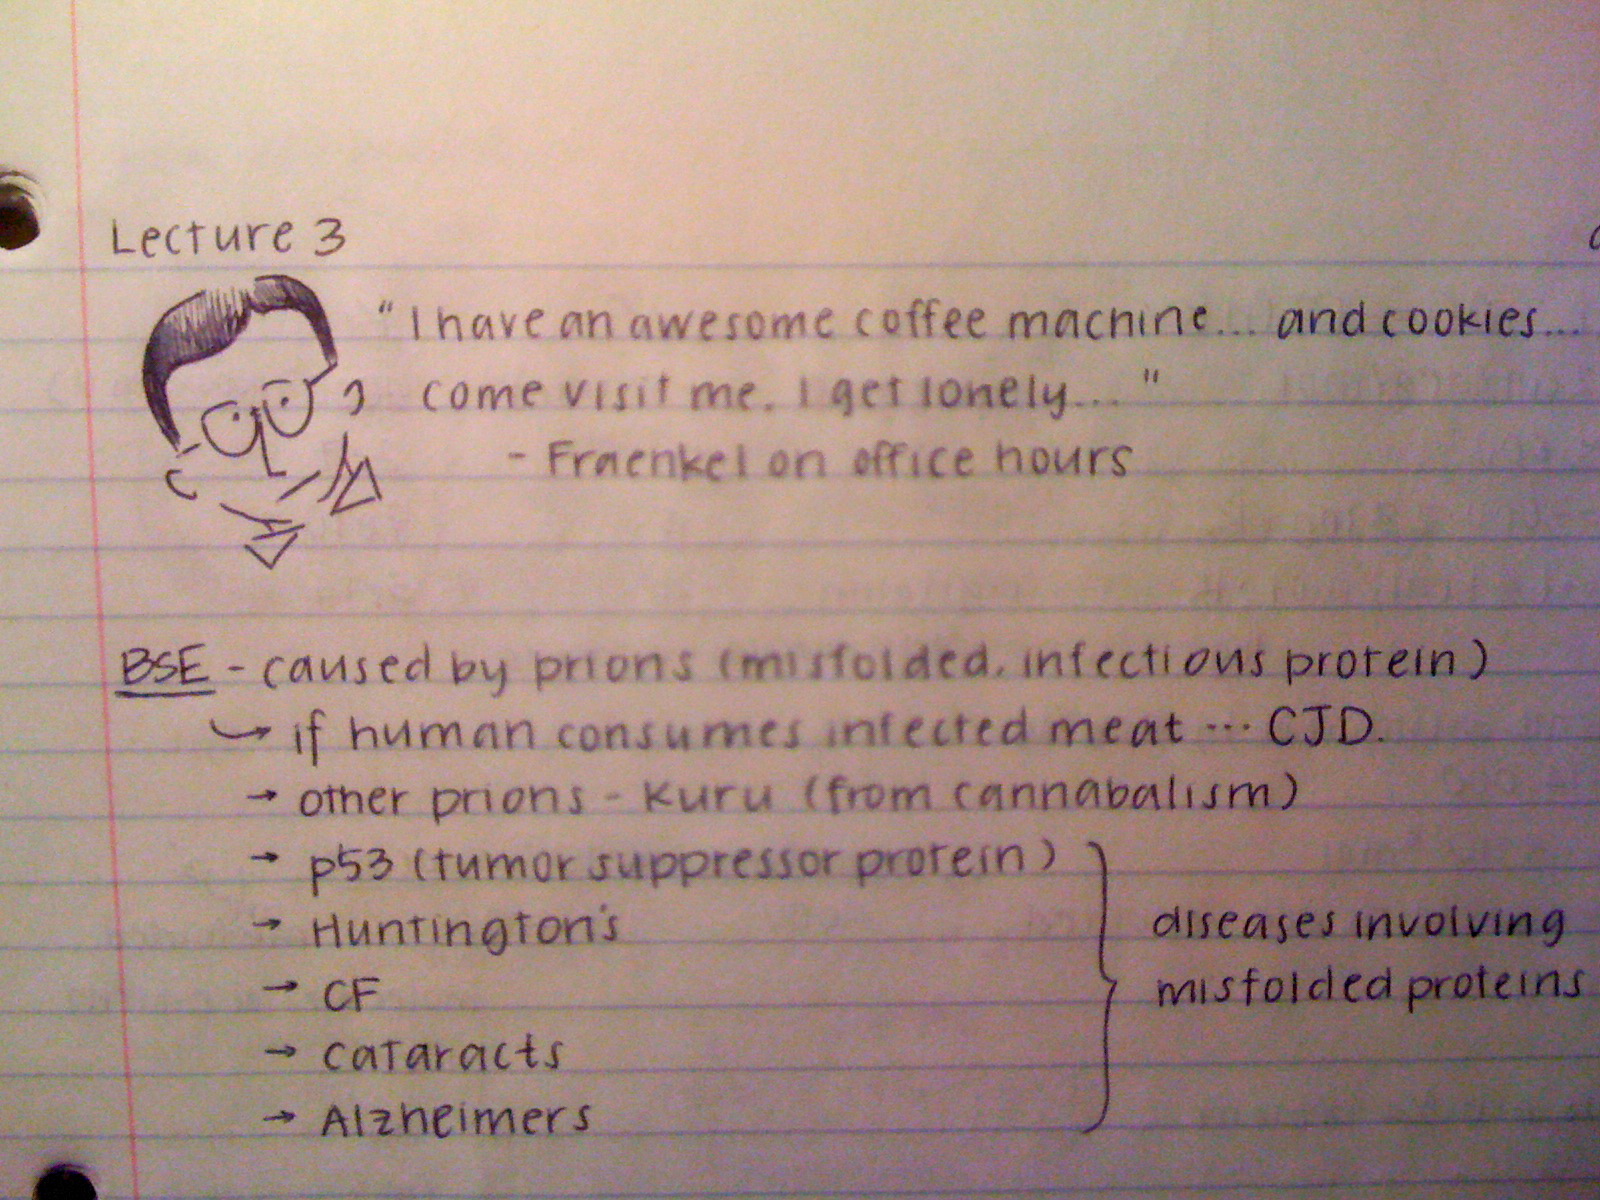 Lecture 3
"I have an awesome coffee machine... and cookies...
come visit me. I get lonely..."
- Fraenkel on office hours
BSE - caused by prions (misfolded, infectious protein)
↪ if human consumes infected meat ... CJD.
→ other prions - Kuru (from cannabalism)
→ p53 (tumor suppressor protein)
→ Huntington's
diseases involving
misfolded proteins
→ CF
→ cataracts
→ Alzheimers